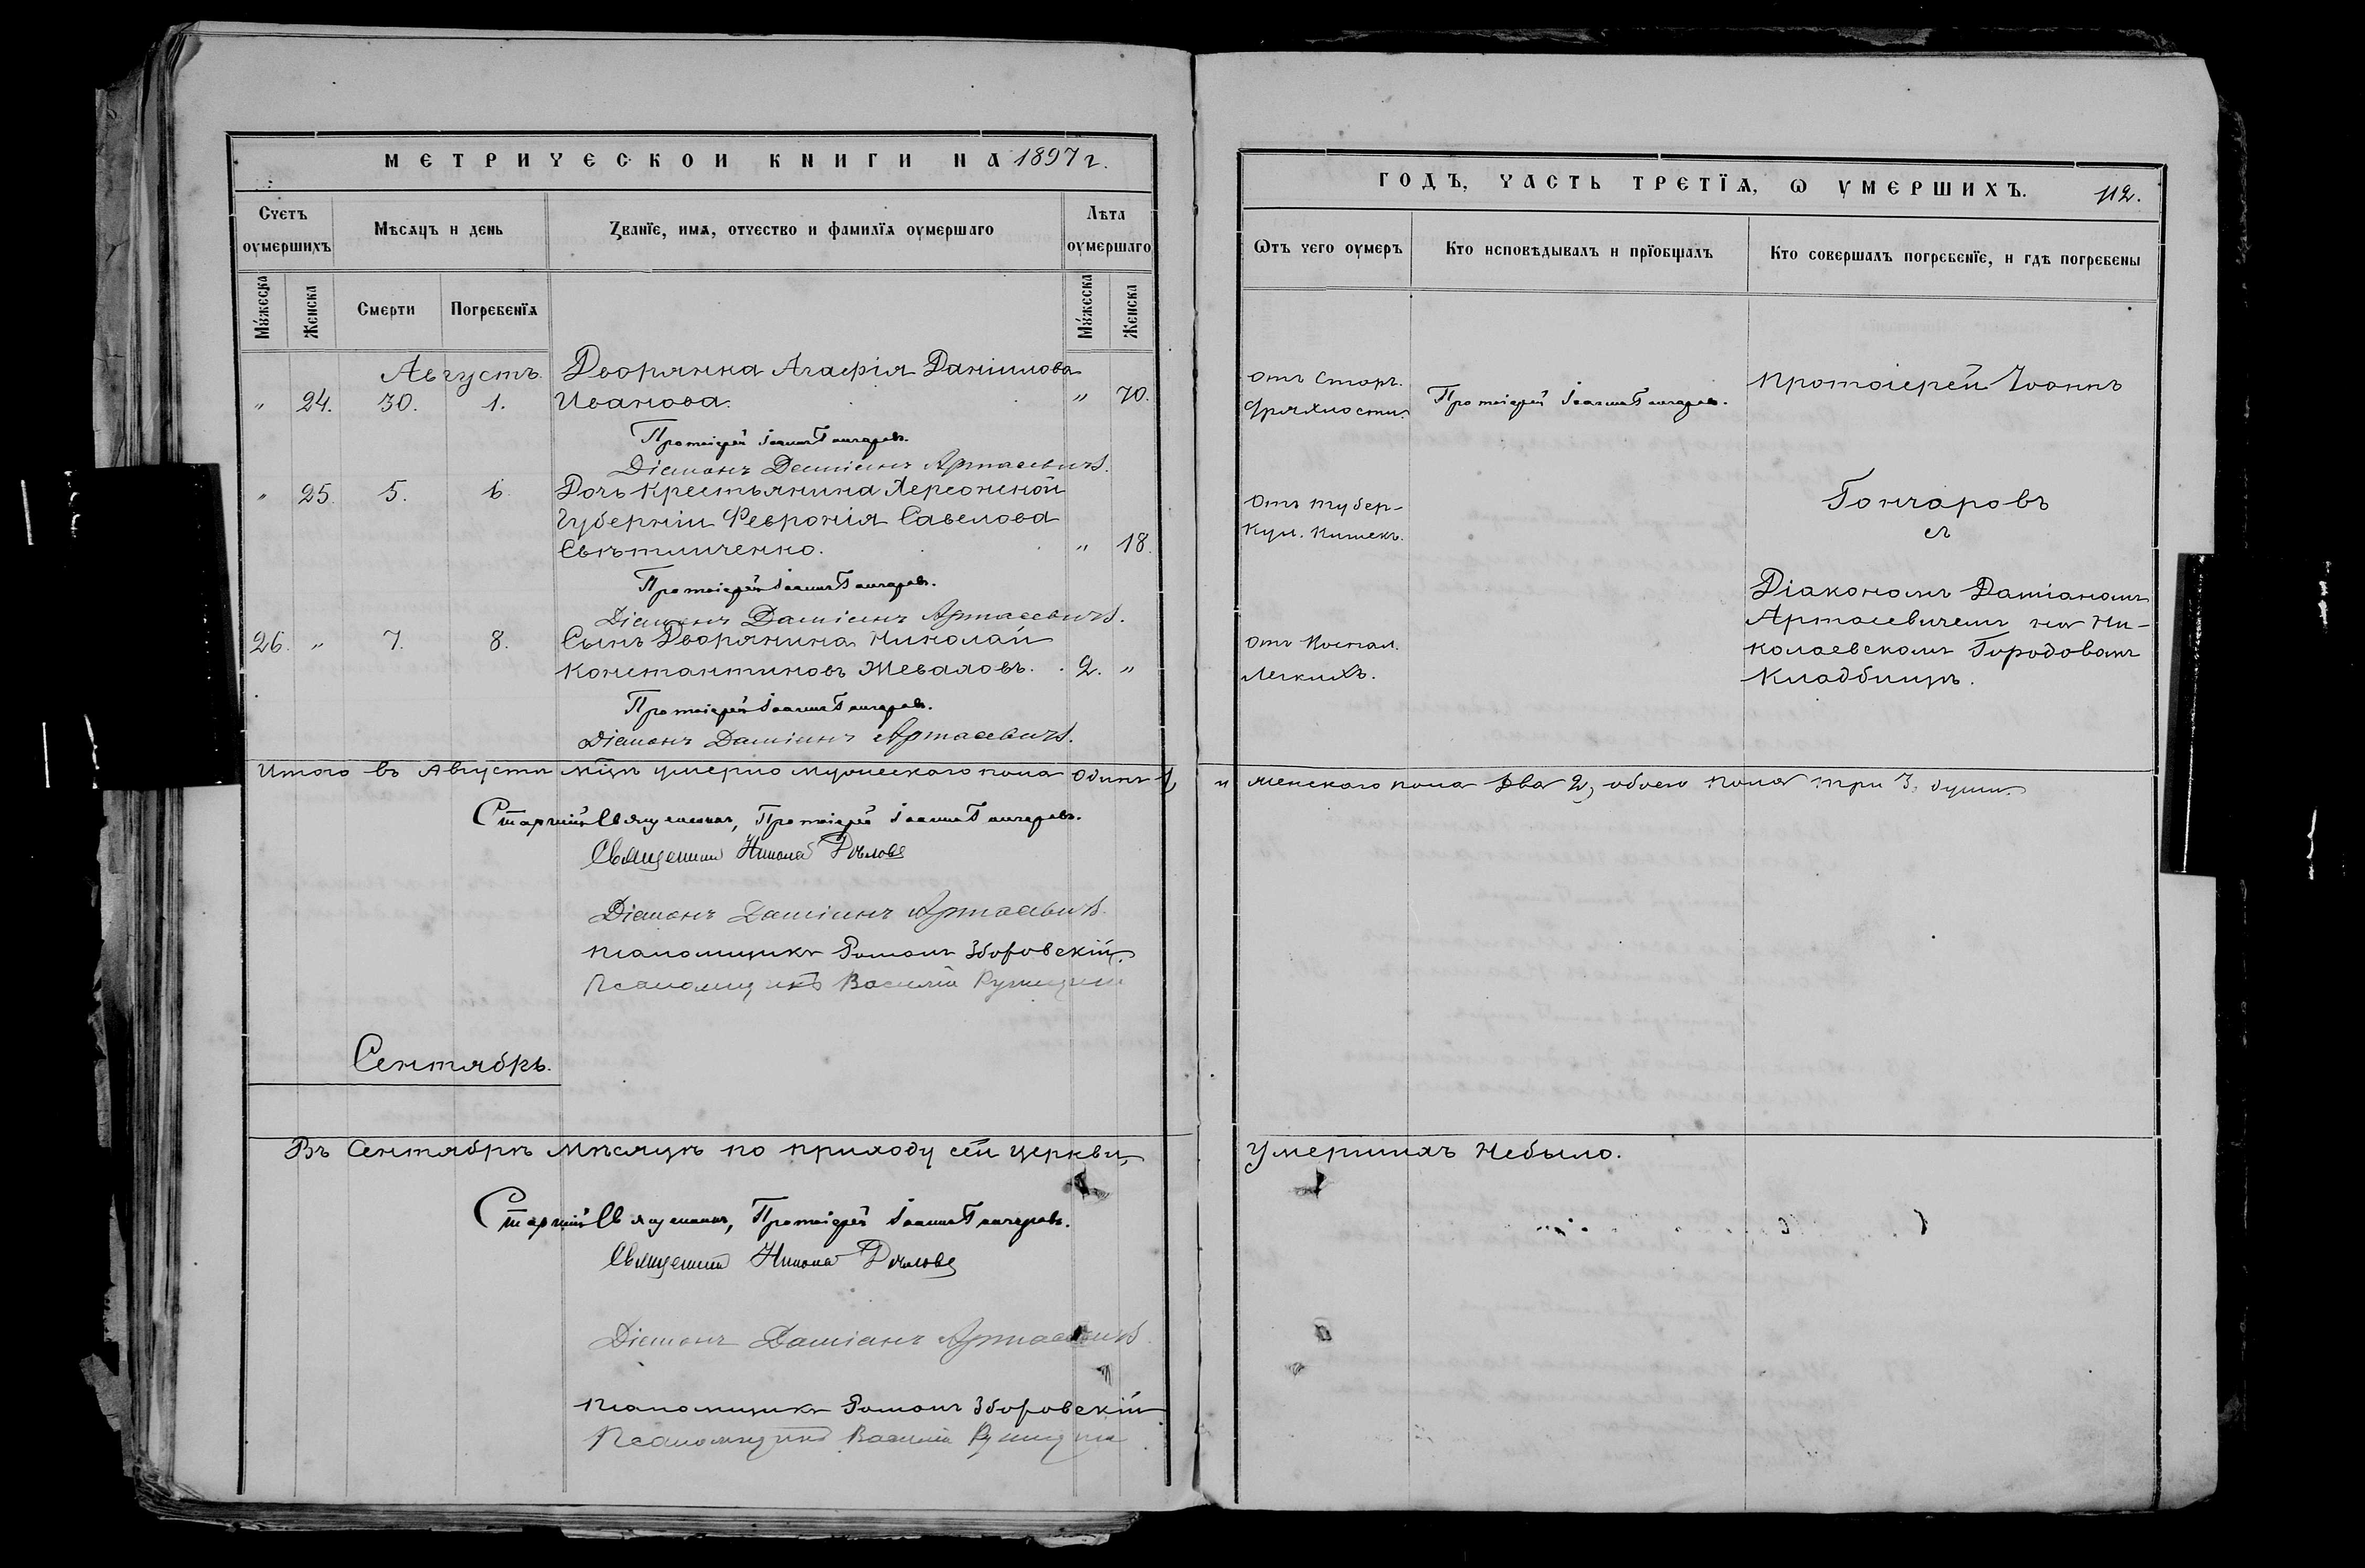 МЕТРИЧЕСКОИ КНИГИ НА 1897 г.
Счетъ оумершихъ
Мѣсяцъ и день
Званїе, имя, отчество и фамилїя оумершаго
Лѣта оумершаго
Мужеска
Женска
Смерти
Погребенїя
Мужеска
Женска
Августъ.
Дворянка Агафія Даніилова
" 24. 30. 1. Иванова. " 70.
Протоіерей Іоаннъ Гончаровъ.
Діаконъ Даміанъ Артасевичъ.
" 25. 5. 6. Дочь Крестьянина Херсонской
Губерніи Феврονія Савелова
Свѣтличенко. " 18.
Протоіерей Іоаннъ Гончаровъ.
Діаконъ Даміанъ Артасевичъ.
26. " 7. 8. Сынъ Дворянина Николай
Константиновъ Жеваловъ. 2. "
Протоіерей Іоаннъ Гончаровъ.
Діаконъ Даміанъ Артасевичъ.
Итого въ Августѣ мцѣ умерло мужескаго пола Одинъ 1,
Старшій Священникъ, Протоіерей Іоаннъ Гончаровъ.
Священникъ Николай
Діаконъ Даміанъ Артасевичъ.
псаломщикъ Романъ Зборовскій.
Псаломщикъ Василій
Сентябрь.
Въ Сентябрѣ мѣсяцѣ по приходу сей церкви,
Старшій Священникъ, Протоіерей Іоаннъ Гончаровъ.
Священникъ Николай
Діаконъ Даміанъ Артасевичъ.
псаломщикъ Романъ Зборовскій
Псаломщикъ Василій
ГОДЪ, ЧАСТЬ ТРЕТЇЯ, Ѡ УМЕРШИХЪ. 112.
Ѿтъ чего оумеръ
Кто исповѣдывалъ и прїобщалъ
Кто совершалъ погребенїе, и гдѣ погребены
отъ стар.
дряхлости.
Протоіерей Іоаннъ Гончаровъ.
отъ тубер-
кул. кишекъ.
отъ воспал.
легкихъ.
Протоіерей Іоаннъ
Гончаровъ
съ
Діакономъ Даміаномъ
Артасевичемъ на Ни-
колаевскомъ Городовомъ
Кладбищѣ.
и женскаго пола два 2, обоего пола три 3. души.
умершихъ небыло.